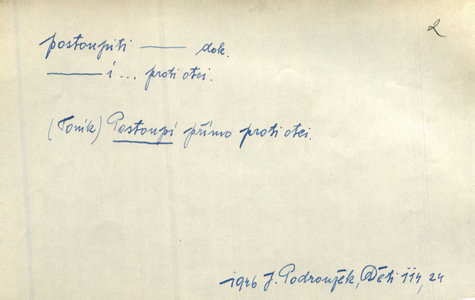 2
postoupiti —— dok.
——— í ... proti otci.
(Toník) Postoupí přímo proti otci.
1946 J. Podroužek, Děti 114, 24